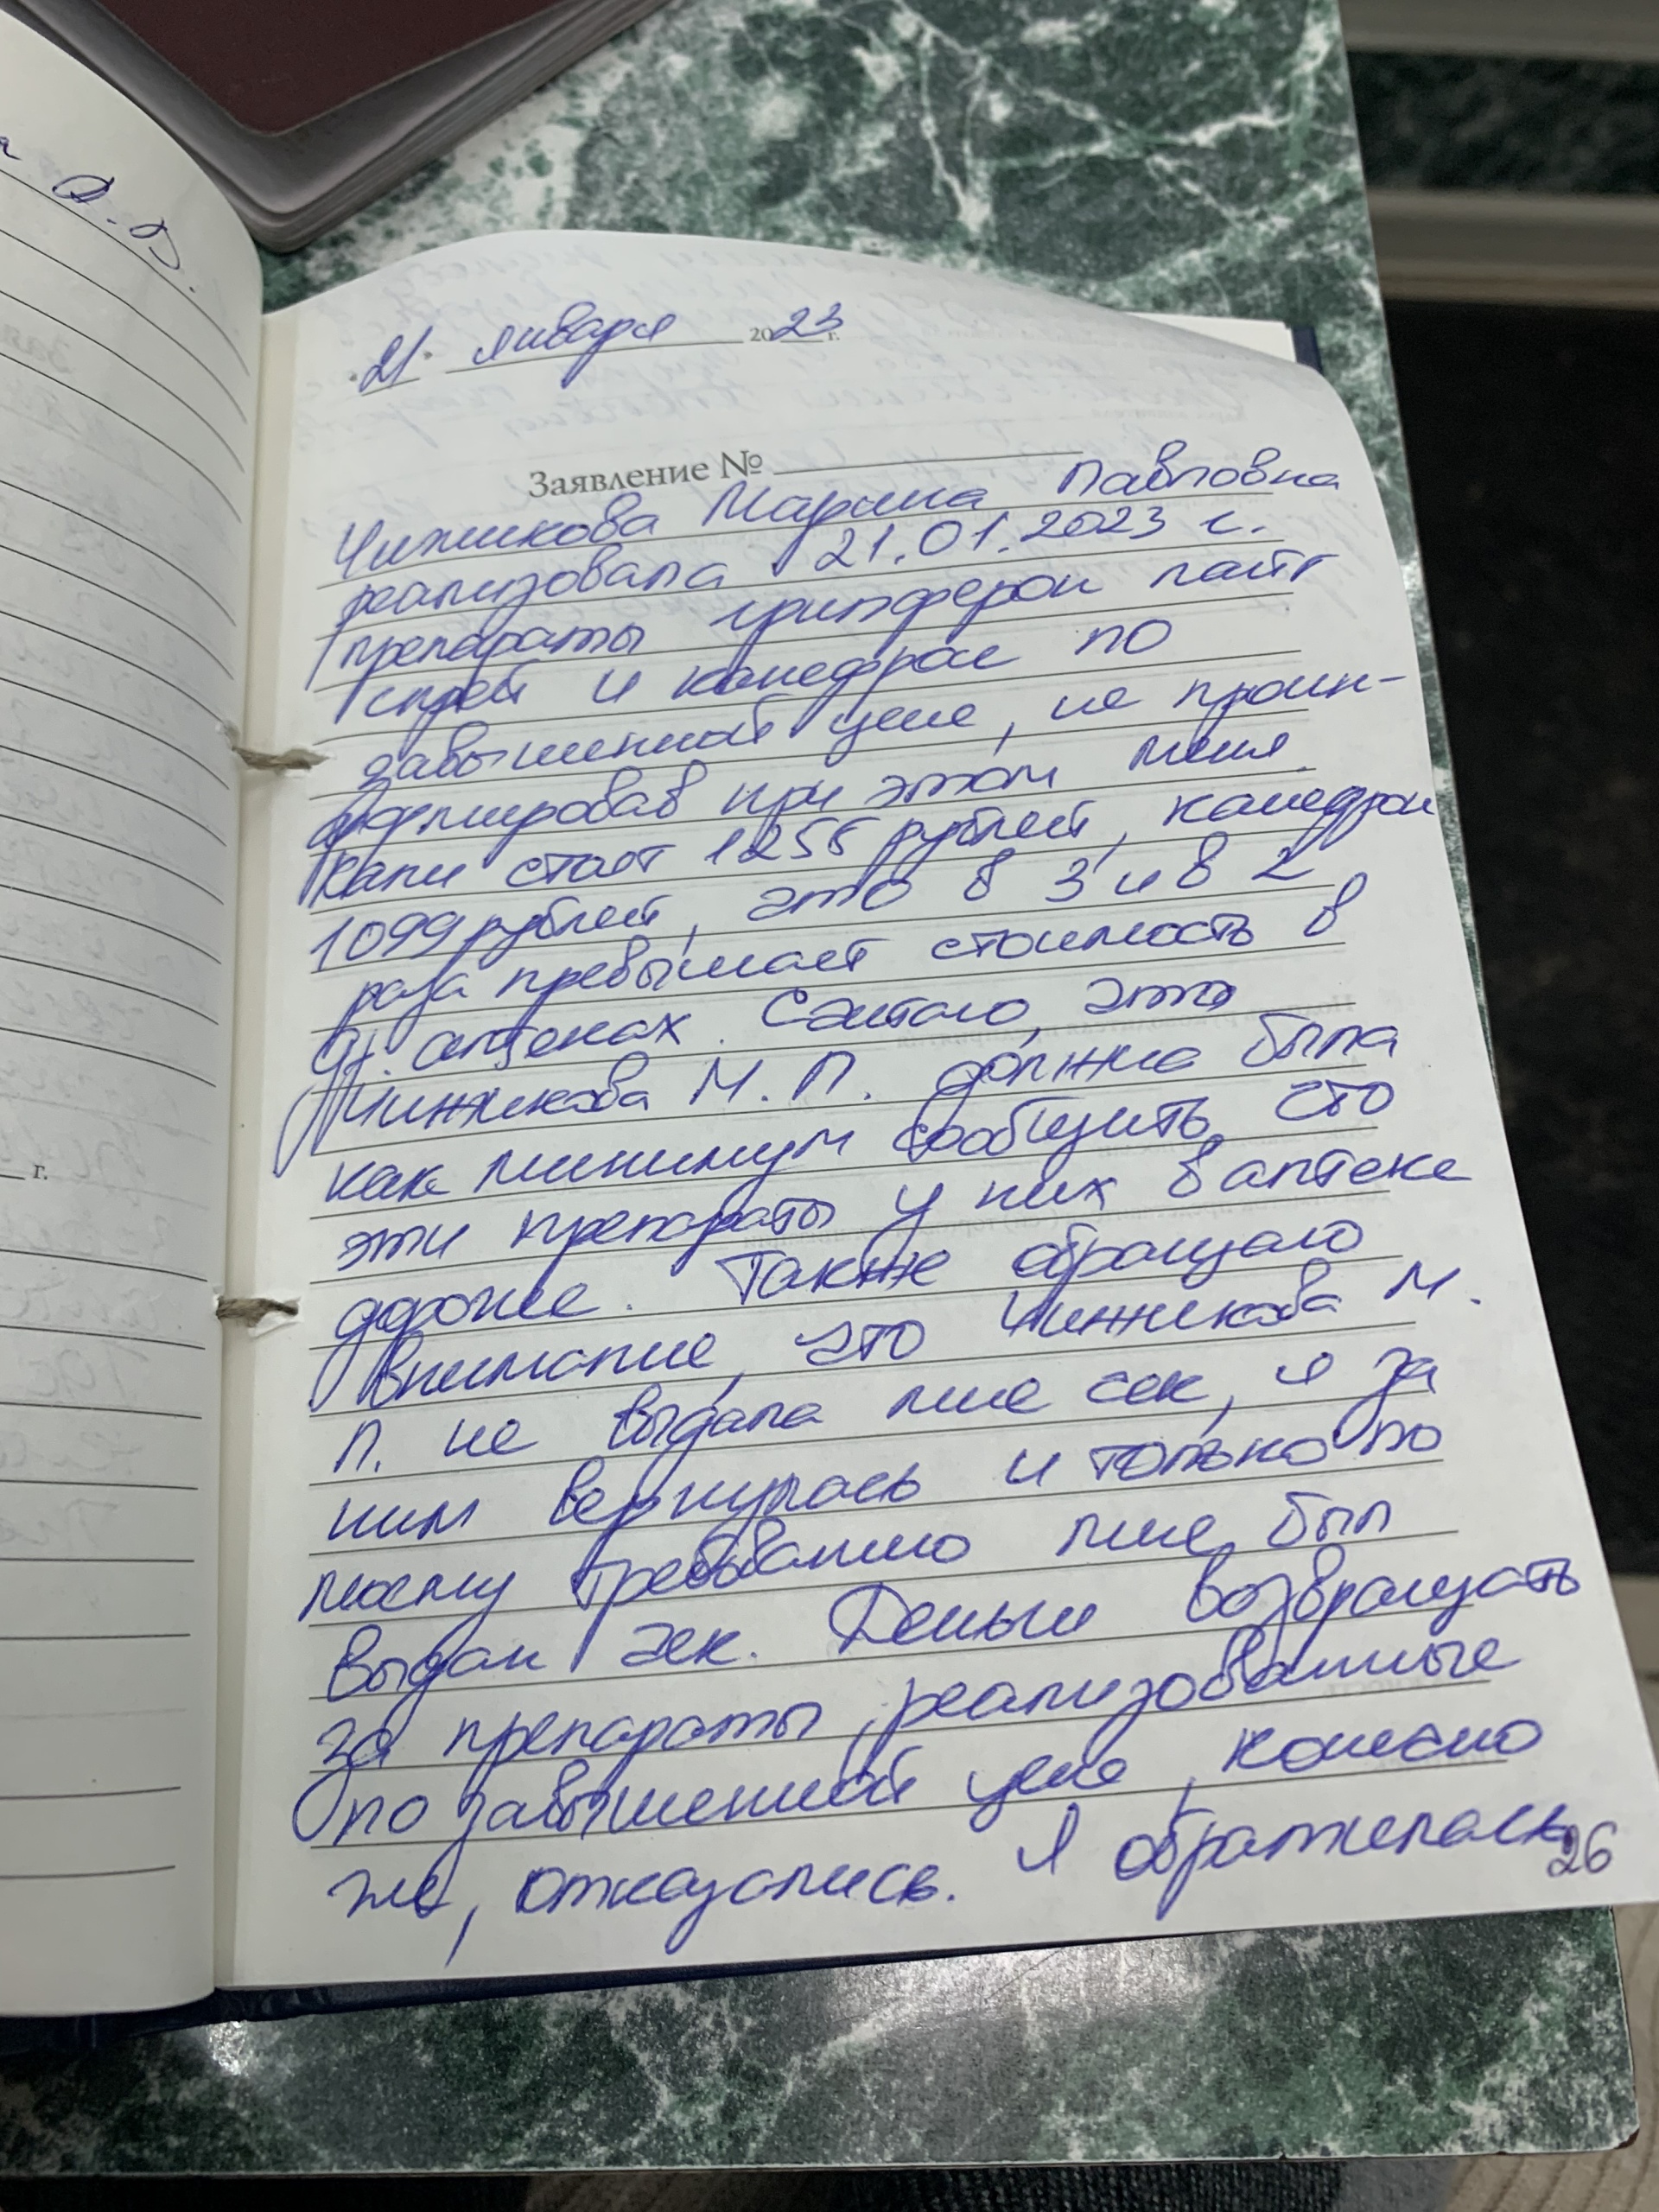 21 января 2023 г.
Заявление №
Чижикова Марина Павловна
реализовала 21.01.2023 г.
препараты гриппферон лайт
спрей и канефрон по
завышенной цене, не проин-
формировав при этом меня.
Капи стоят 1255 рублей, канефрон
1099 рублей, это в 3 и в 2
раза превышает стоимость в
др. аптеках. Считаю, это
Чижикова М. П. должна была
как минимум сообщить, что
эти препараты у них в аптеке
дороже. Также обращаю
внимание, что Чижикова М.
П. не выдала мне чек, я за
ним вернулась и только по
моему требованию мне был
выдан чек. Деньги возвращать
за препараты, реализованные
по завышенной цене, конечно
же, отказались. Я обратилась
26
г.